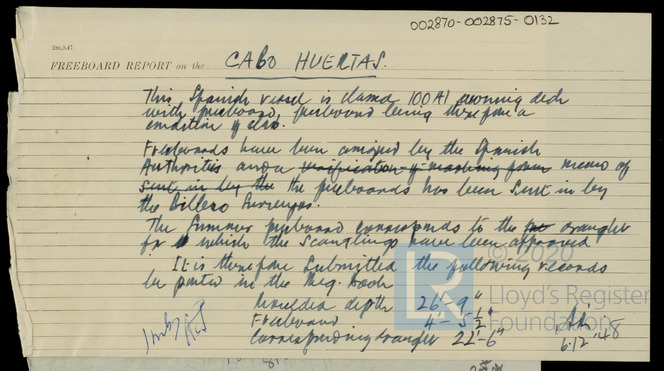 002870-002875-0132
2m,9,47.
FREEBOARD REPORT on the CABO HUERTAS.
This Spanish vessel is classed 100A1 awning deck
with freeboard, freeboard being therefore a
condition of class.
Freeboards have been assigned by the Spanish
Authorities and a verification of marking form memo of
sent in by the the freeboards has been sent in by
the Bilbao Surveyors.
The Summer freeboard corresponds to the draught
for which the scantlings have been approved
It is therefore submitted the following records
be posted in the Reg. Book
Moulded depth 26'-9"
Freeboard 4-5½"
Corresponding draught 22'-6"
6.12.48
LR
© 2020
Lloyd's Register
Foundation